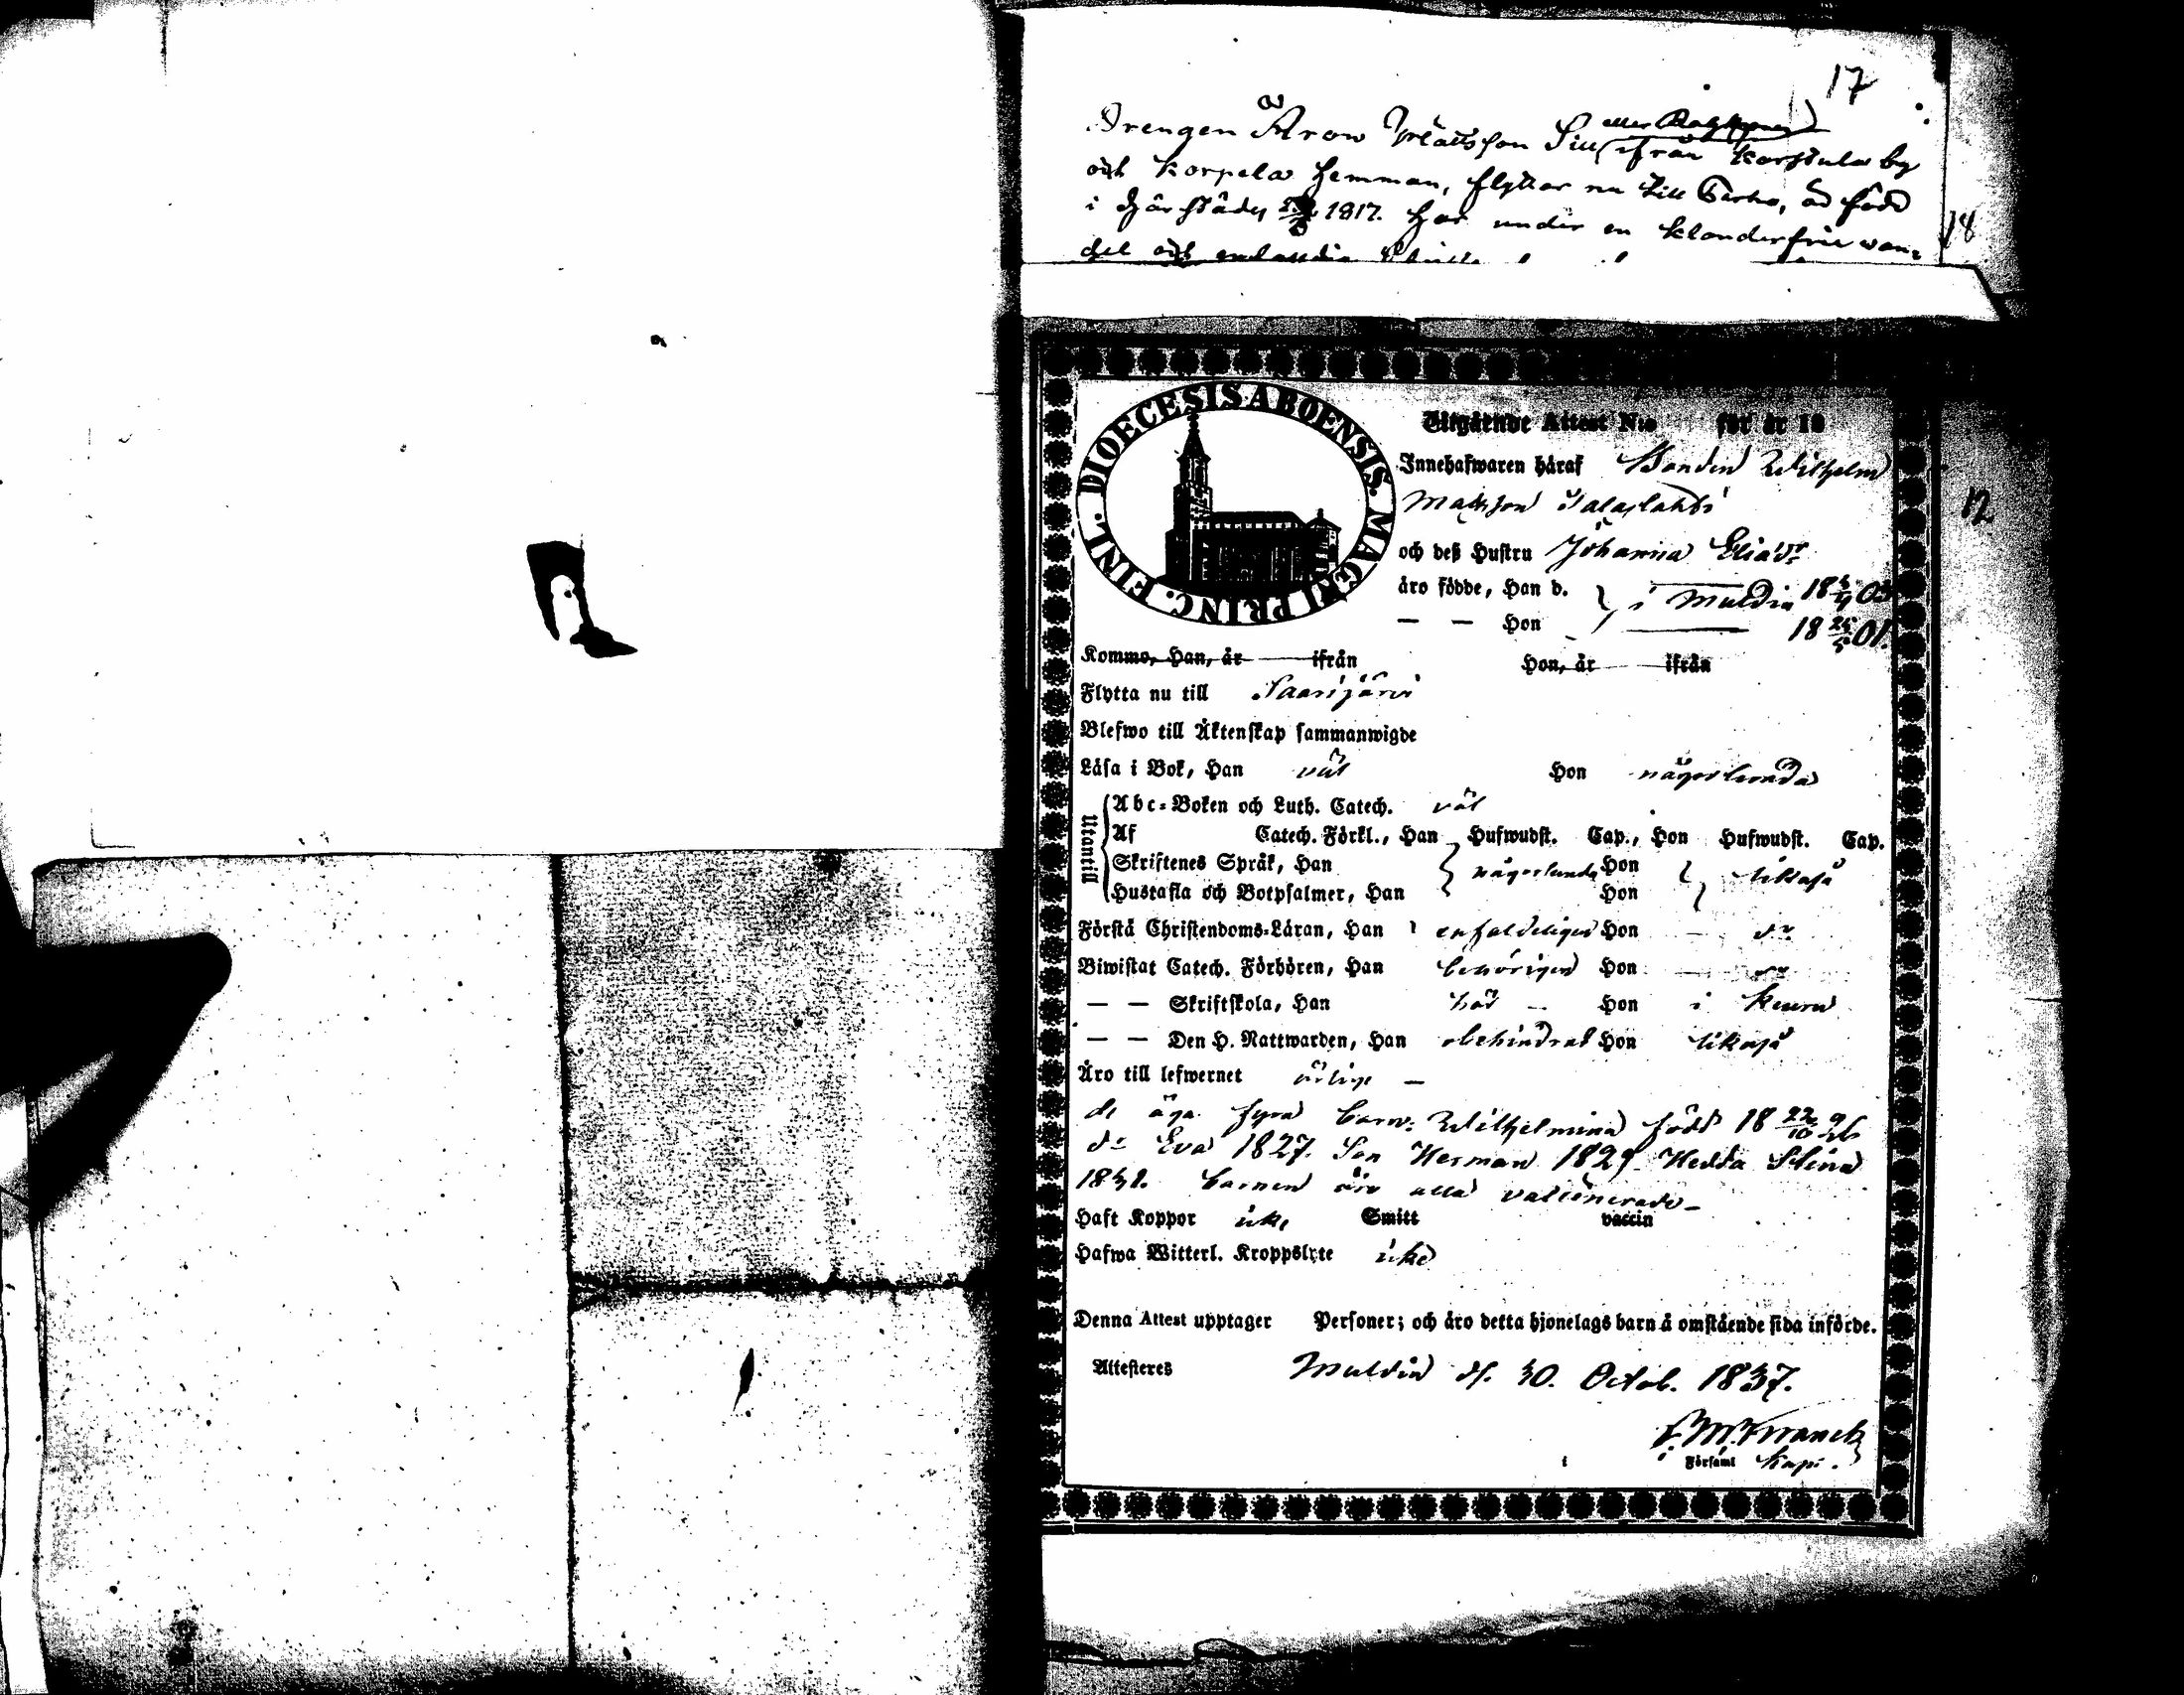 17
Drengen Aron Mattsson Sill (eller
ifrån Karstula by
och Korpela hemman, flyttar nu till är född
i 1817. Har under en klanderfri wan-
del och
18
DIOECESIS ABOENSIS. MAGNI PRINC. FINL.
Utgående Attest N:o för år 18
Innehafwaren häraf Bonden Wilhelm
Mattsson
och deß Hustru Johanna Eliaedr
äro födde, Han d. i Muldia 18 4 03
— — Hon 18 01.
12
Kommo, Han, år ifrån Hon, år ifrån
Flytta nu till Saarijärvi
Blefwo till Äktenskap sammanwigde
Läsa i Bok, Han väl Hon någorlunda
Utantill
Abc-Boken och Luth. Catech. väl
Af Catech. Förkl., Han Hufwudst. Cap., Hon Hufwudst. Cap.
Skriftenes Språk, Han någorlunda Hon likaså
Hustafla och Botpsalmer, Han Hon
Förstå Christendoms-Läran, Han enfaldeligen Hon — do
Biwistat Catech. Förhören, Han behörigen Hon — do
— — Skriftskola, Han Hon i Keuru
— — Den H. Nattwarden, Han obehindrad Hon likaså
Äro till lefwernet ärlige —
de äga fyra barn: Wilhelmina född 18 22/10 26
do Eva 1827. Son Herman 1829. Hedda Stina
barnen äro alla vaccinerade —
Haft Koppor icke Smitt vaccin
Hafwa Witterl. Kroppslyte icke
Denna Attest upptager Personer; och äro detta hjonelags barn å omstående sida införde.
Attesteres Muldia d. 30. Octob. 1837.
Franck
i Församl Kapl.